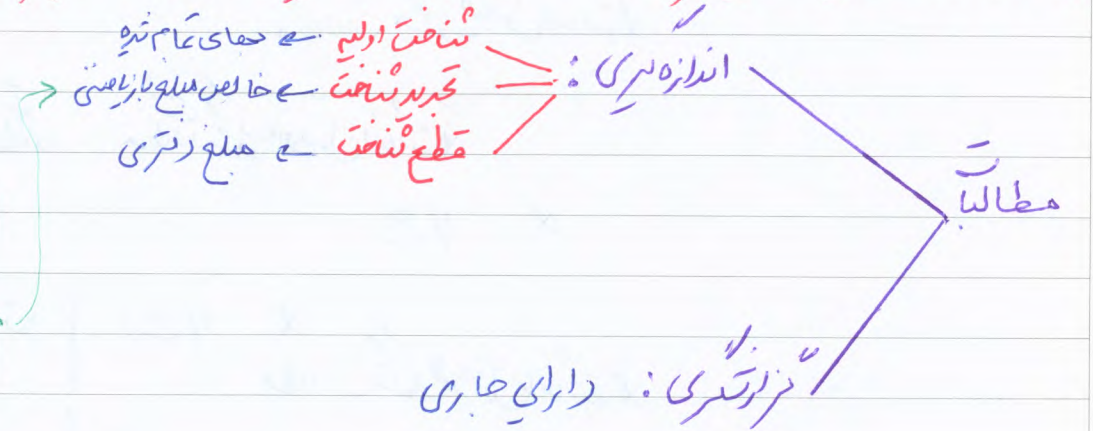 مطالبات
اندازه گیری :
شناخت اولیه ← بهای تمام شده
تجدید شناخت ← خالص مبلغ بازیافتنی
قطع شناخت ← مبلغ دفتری
گزارشگری : دارایی جاری